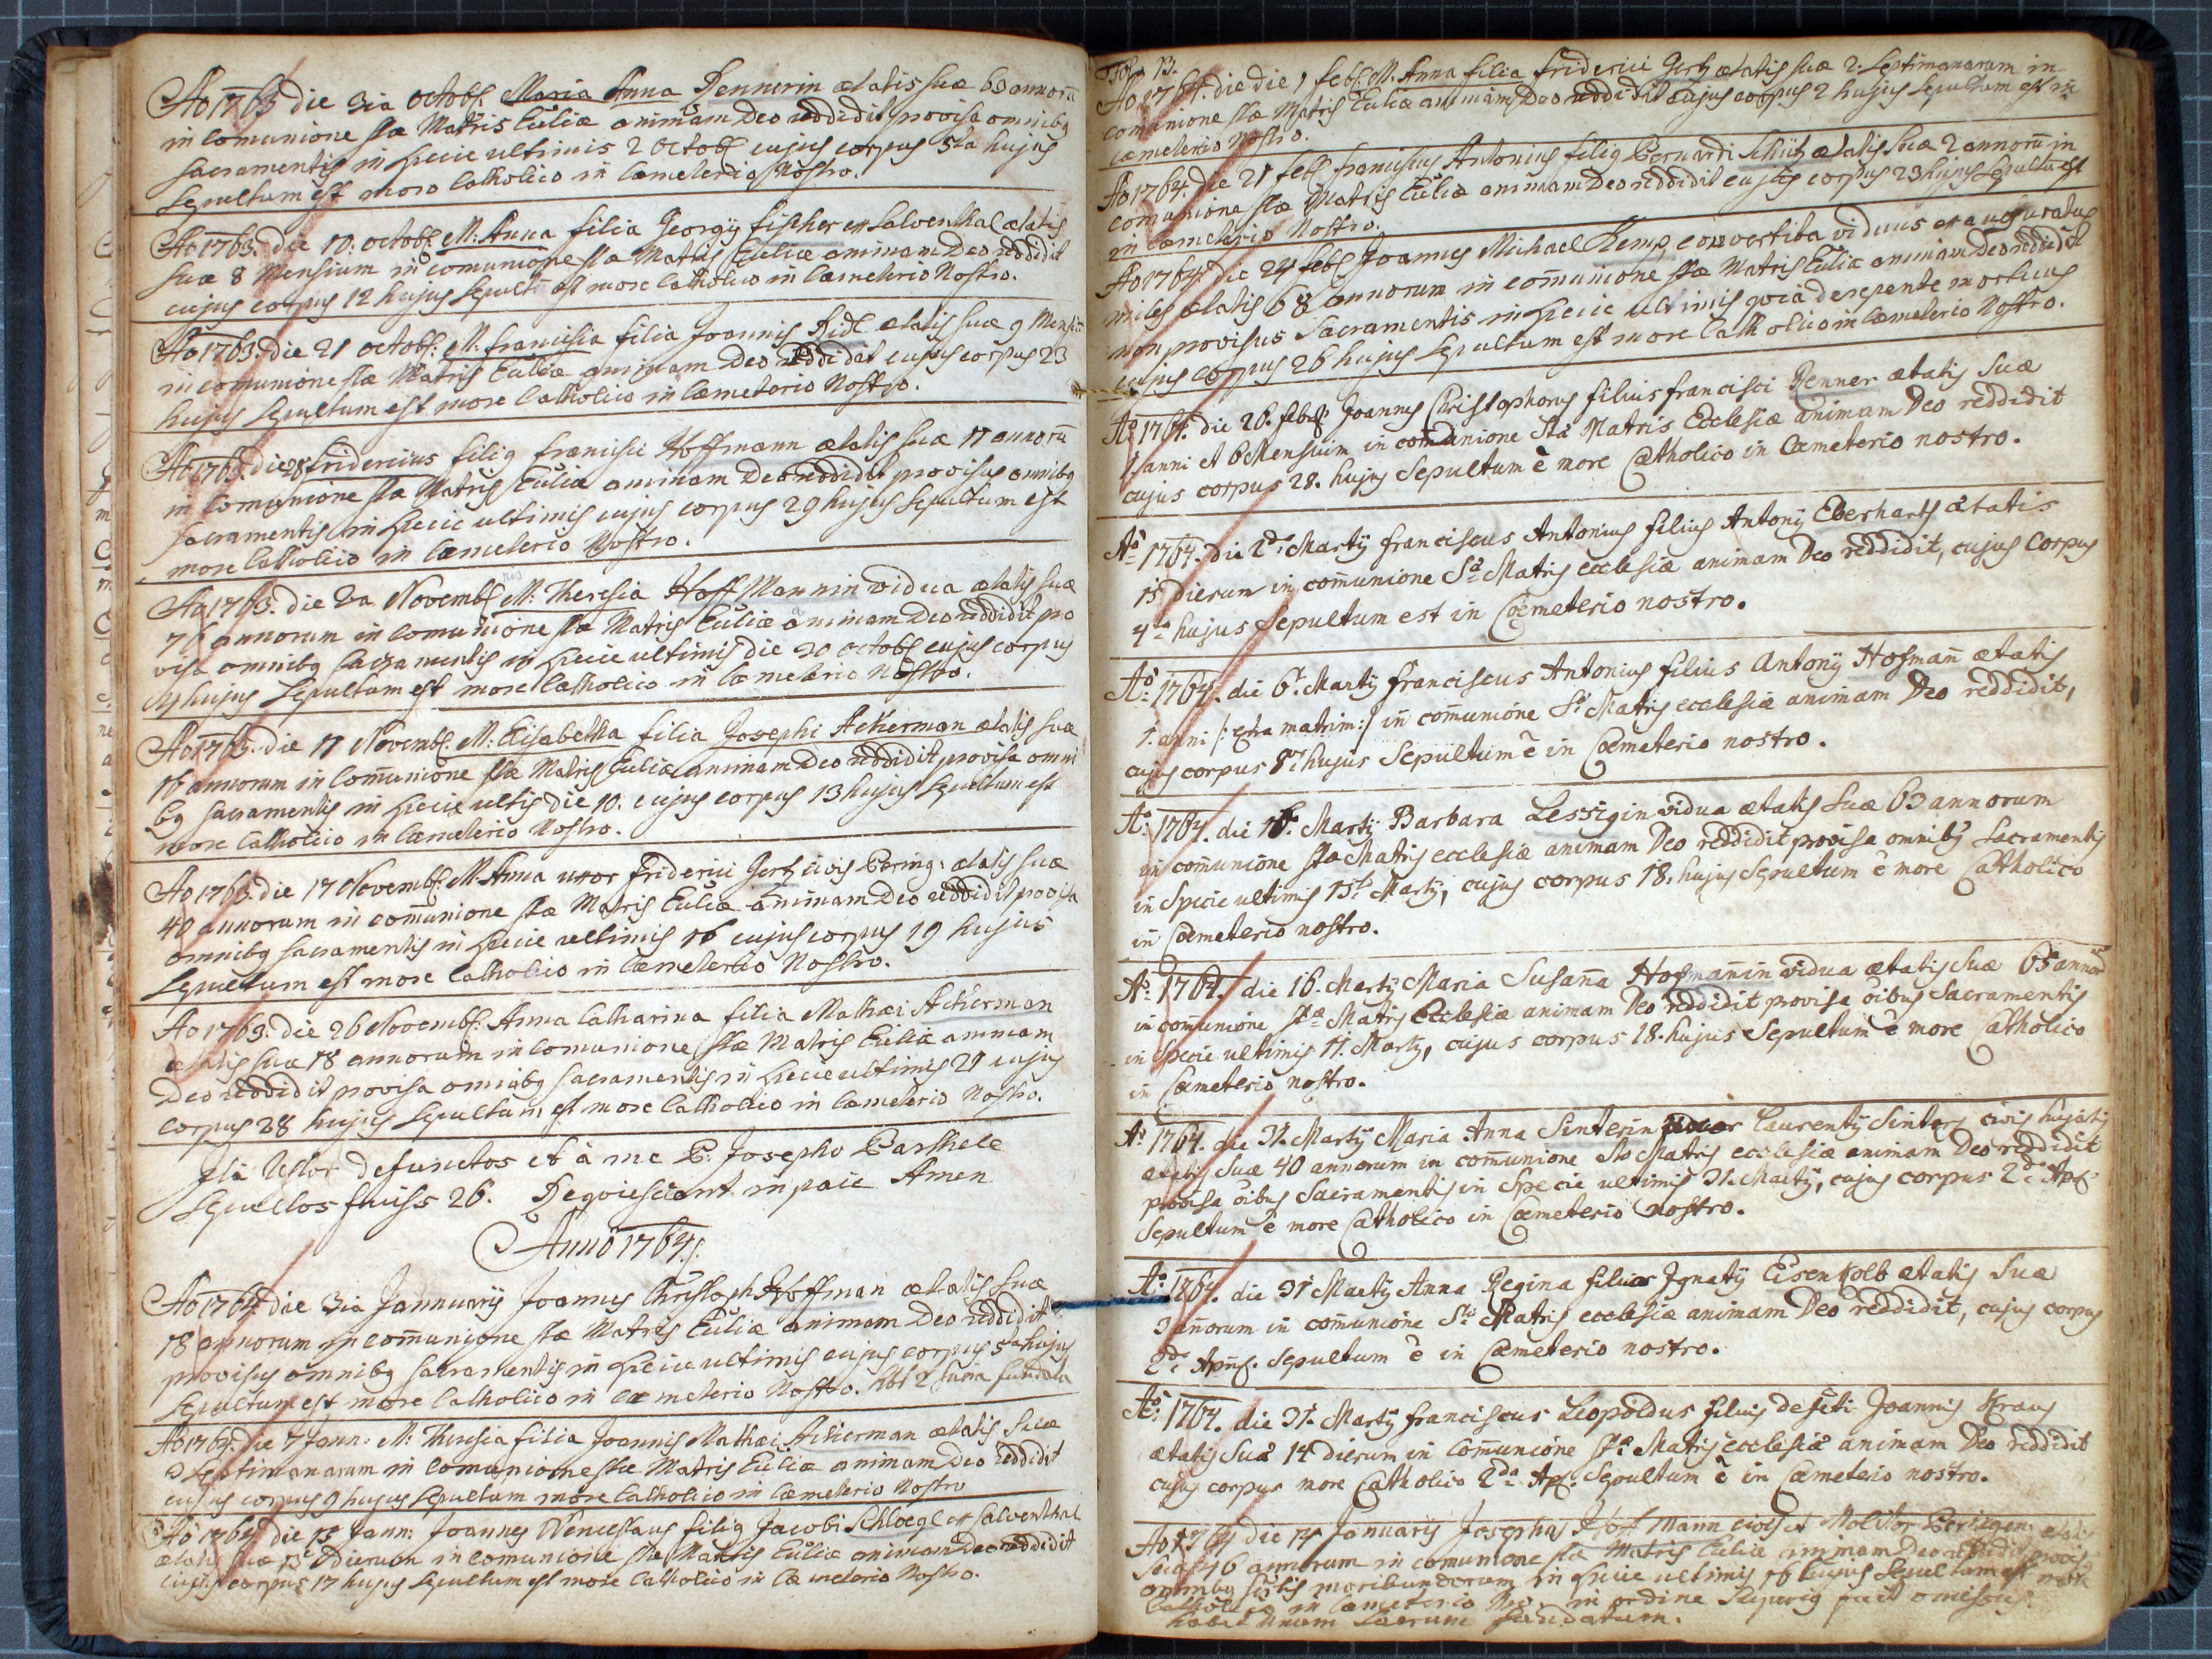 Ao 1763 die 3ia Octobr. Maria Anna Rennerin ætatis suæ 63 annorū
in comunione stæ Matris Eccliæ animam Deo reddidit provisa omnibq
sacramentis in specie ultimis 2 Octobr cujus corpus 5ta hujus
sepultum est more Catholico in Cæmeterio Nostro.
Ao 1763. die 10. octobr. M: Anna filia Georgij fischer ex Salventhal ætatis
suæ 8 Mensium in comunione stæ Matris Eccliæ animam Deo reddidit
cujus corpus 12 hujus sepult est more Catholico in Cæmeterio Nostro.
Ao 1763. die 21 octobr: M: francisca filia Joannis Ridl ætatis suæ 9 Mensiū
in comunione stæ Matris Eccliæ animam Deo reddidat cujus corpus 23
hujus sepultum est more Catholico in Cæmeterio Nostro.
Ao 1763. die 28 fridericus filiq francisci Hoffmann ætatis suæ 17 annorū
in Comunione stæ Matris Eccliæ animam Deo reddidit provisus omnibq
sacramentis in specie ultimis cujus corpus 29 hujus sepultum est
more Catholico in Cæmeterio Nostro.
Ao 1763. die 2a Novembr M: Theresia HoffMannin vidua ætatis suæ
76 annorum in comunione stæ Matris Eccliæ animam Deo reddidit pro
visa omnibq sacramentis in specie ultimis die 20 octobr cujus corpus
hujus sepultum est more Catholico in Cæmeterio Nostro.
Ao 1763. die 11 Novembr. M: Elisabetha filia Josephi Ackerman ætatis suæ
16 annorum in Com̄unione stæ Matris Eccliæ animam Deo reddidit provisa omni
bq sacramentis in specie ultis die 10. cujus corpus 13 hujus sepultum est
more Catholico in Cæmeterio Nostro.
Ao 1763. die 17 Novembr. M: Anna uxor friderici Gertz civis Bering: ætatis suæ
40 annorum in com̄unione stæ Matris Eccliæ animam Deo reddidit provisa
omnibq sacramentis in specie ultimis 16 cujus corpus 19 hujus
sepultum est more Catholico in Cæmeterio Nostro.
Ao 1763. die 26 Novembr. Anna Catharina filia Mathæi Ackerman
ætatis suæ 18 annorum in comunione stæ Matris Eccliæ animam
Deo reddidit provisa omnibq sacramentis in specie ultimis 21 cujus
corpus 28 hujus sepultum est more Catholico in Cæmeterio Nostro.
Ita Testor defunctos et à me P: Josepho Barthele
sepultos fuiss 26. Requiescant in pace Amen
Anno 1764.
Ao 1764 die 3ia Jannuarij Joannes Christoph Hoffman ætatis suæ
18 annorum in com̄unione stæ Matris Eccliæ animam Deo reddidit
provisus omnibq sacramentis in specie ultimis cujus corpus 5ta hujus
sepultum est more Catholico in cæmeterio Nostro. 2 sacra fundata
Ao 1764. die 7 Jann: M: Theresia filia Joannis Mathæi Ackerman ætatis suæ
3 septimanarum in comunione stæ Matris Eccliæ animam Deo reddidit
cujus corpus 9 hujus sepultum more Catholico in Cæmeterio Nostro
Ao 1764 die 15 Jann: Joannes Wenceslaus filiq Jacobi Schloegl ex Salventhal
ætatis suæ dierum in comunione stæ Matris Eccliæ animam Deo reddidit
cujus corpus 17 hujus sepultum est more Catholico in Cæmeterio Nostro.
Fol. 13.
Ao 1764. die die 1 febr. M. Anna filia friderici Gertz ætatis suæ 2: septimanarum in
comunione stæ Matris Eccliæ animam Deo reddidit cujus corpus 2 hujus sepultum est in
cæmeterio Nostro.
Ao 1764. die 21 febr franciscus Antonius filiq Bernardi Schütz ætatis suæ 2 annorū in
comunione stæ Matris Eccliæ animam Deo reddidit cujus corpus 23 hujus sepultū est
in cæmeterio Nostro.
Ao 1764. die 24 febr Joannes Michael Kemp, convertita viduus exauguratus
miles ætatis 68 annorum in com̄unione stæ Matris Eccliæ animam Deo reddidit
non provisus Sacramentis in specie ultimis quia derepente mortuus
cujus corpus 26 hujus sepultum est more Catholico in Cæmeterio Nostro.
Aō 1764. die 26. febr. Joannes Christophorus filius francisci Renner ætatis suæ
1. anni et 6 Mensium in comunione Stæ Matris Ecclesiæ animam Deo reddidit
cujus corpus 28. hujus sepultum ē more Catholico in Cæmeterio nostro.
Aō 1764. die 2da Martij franciscus Antonius filius Antonij Eberharts ætatis
15 dierum in comunione Sæ Matris ecclesiæ animam Deo reddidit, cujus corpus
4ta hujus sepultum est in Cœmeterio nostro.
Aō 1764. die 6ta Martij franciscus Antonius filius Antonij Hofman̄ ætatis
1. anni /: extra matrim:/ in com̄unione Sæ Matris ecclesiæ animam Deo reddidit,
cujus corpus 8va hujus sepultum ē in Cœmeterio nostro.
Aō 1764. die 16. Martij Barbara Lessigin vidua ætatis suæ 63 annorum
in com̄unione stæ Matris ecclesiæ animam Deo reddidit provisa omnibq Sacramentis
in specie ultimis 15ta Martij, cujus corpus 18. hujus sepultum ē more Catholico
in Cœmeterio nostro.
Aō 1764. die 16. Martij Maria Susan̄a Hofman̄in vidua ætatis suæ 65 annorū
in com̄unione stæ Matris Ecclesiæ animam Deo reddidit provisa ōibus Sacramentis
in specie ultimis 11. Martij, cujus corpus 18. hujus sepultum ē more Catholico
in Cœmeterio nostro.
Aō 1764. die 31. Martij Maria Anna Sinterin uxor Laurentij Sinters civis hujatis
ætatis suæ 40 annorum in com̄unione Stæ Matris ecclesiæ animam Deo reddidit
provisa ōibus Sacramentis in specie ultimis 31. Martij, cujus corpus 2da Apr.
sepultum ē more Catholico in Cœmeterio nostro.
Aō 1764. die 31 Martij Anna Regina filia Ignatij Eisenkolb ætatis suæ
3 an̄orum in com̄unione Stæ Matris ecclesiæ animam Deo reddidit, cujus corpus
2da Apr. sepultum ē in Cœmeterio nostro.
Aō 1764. die 31. Martij franciscus Leopoldus filius defūcti Joannis Kraus
ætatis suæ 14 dierum in Com̄unione Stæ Matris ecclesiæ animam Deo reddidit
cujus corpus more Catholico 2da Apr. sepultum ē in Cœmeterio nostro.
Ao 1764 die 14 Januarij Josephus Hoffmann civis et Molitor Beringen: ætatis
suæ 46 annorum in comunione stæ Matris Eccliæ animam Deo reddidit provis
omnibq moribundorum in specie ultimis 16 hujus sepultum est more
Catholico in Cæmeterio in ordine superiq fuit omissus
habet unum sacrum fundatum.